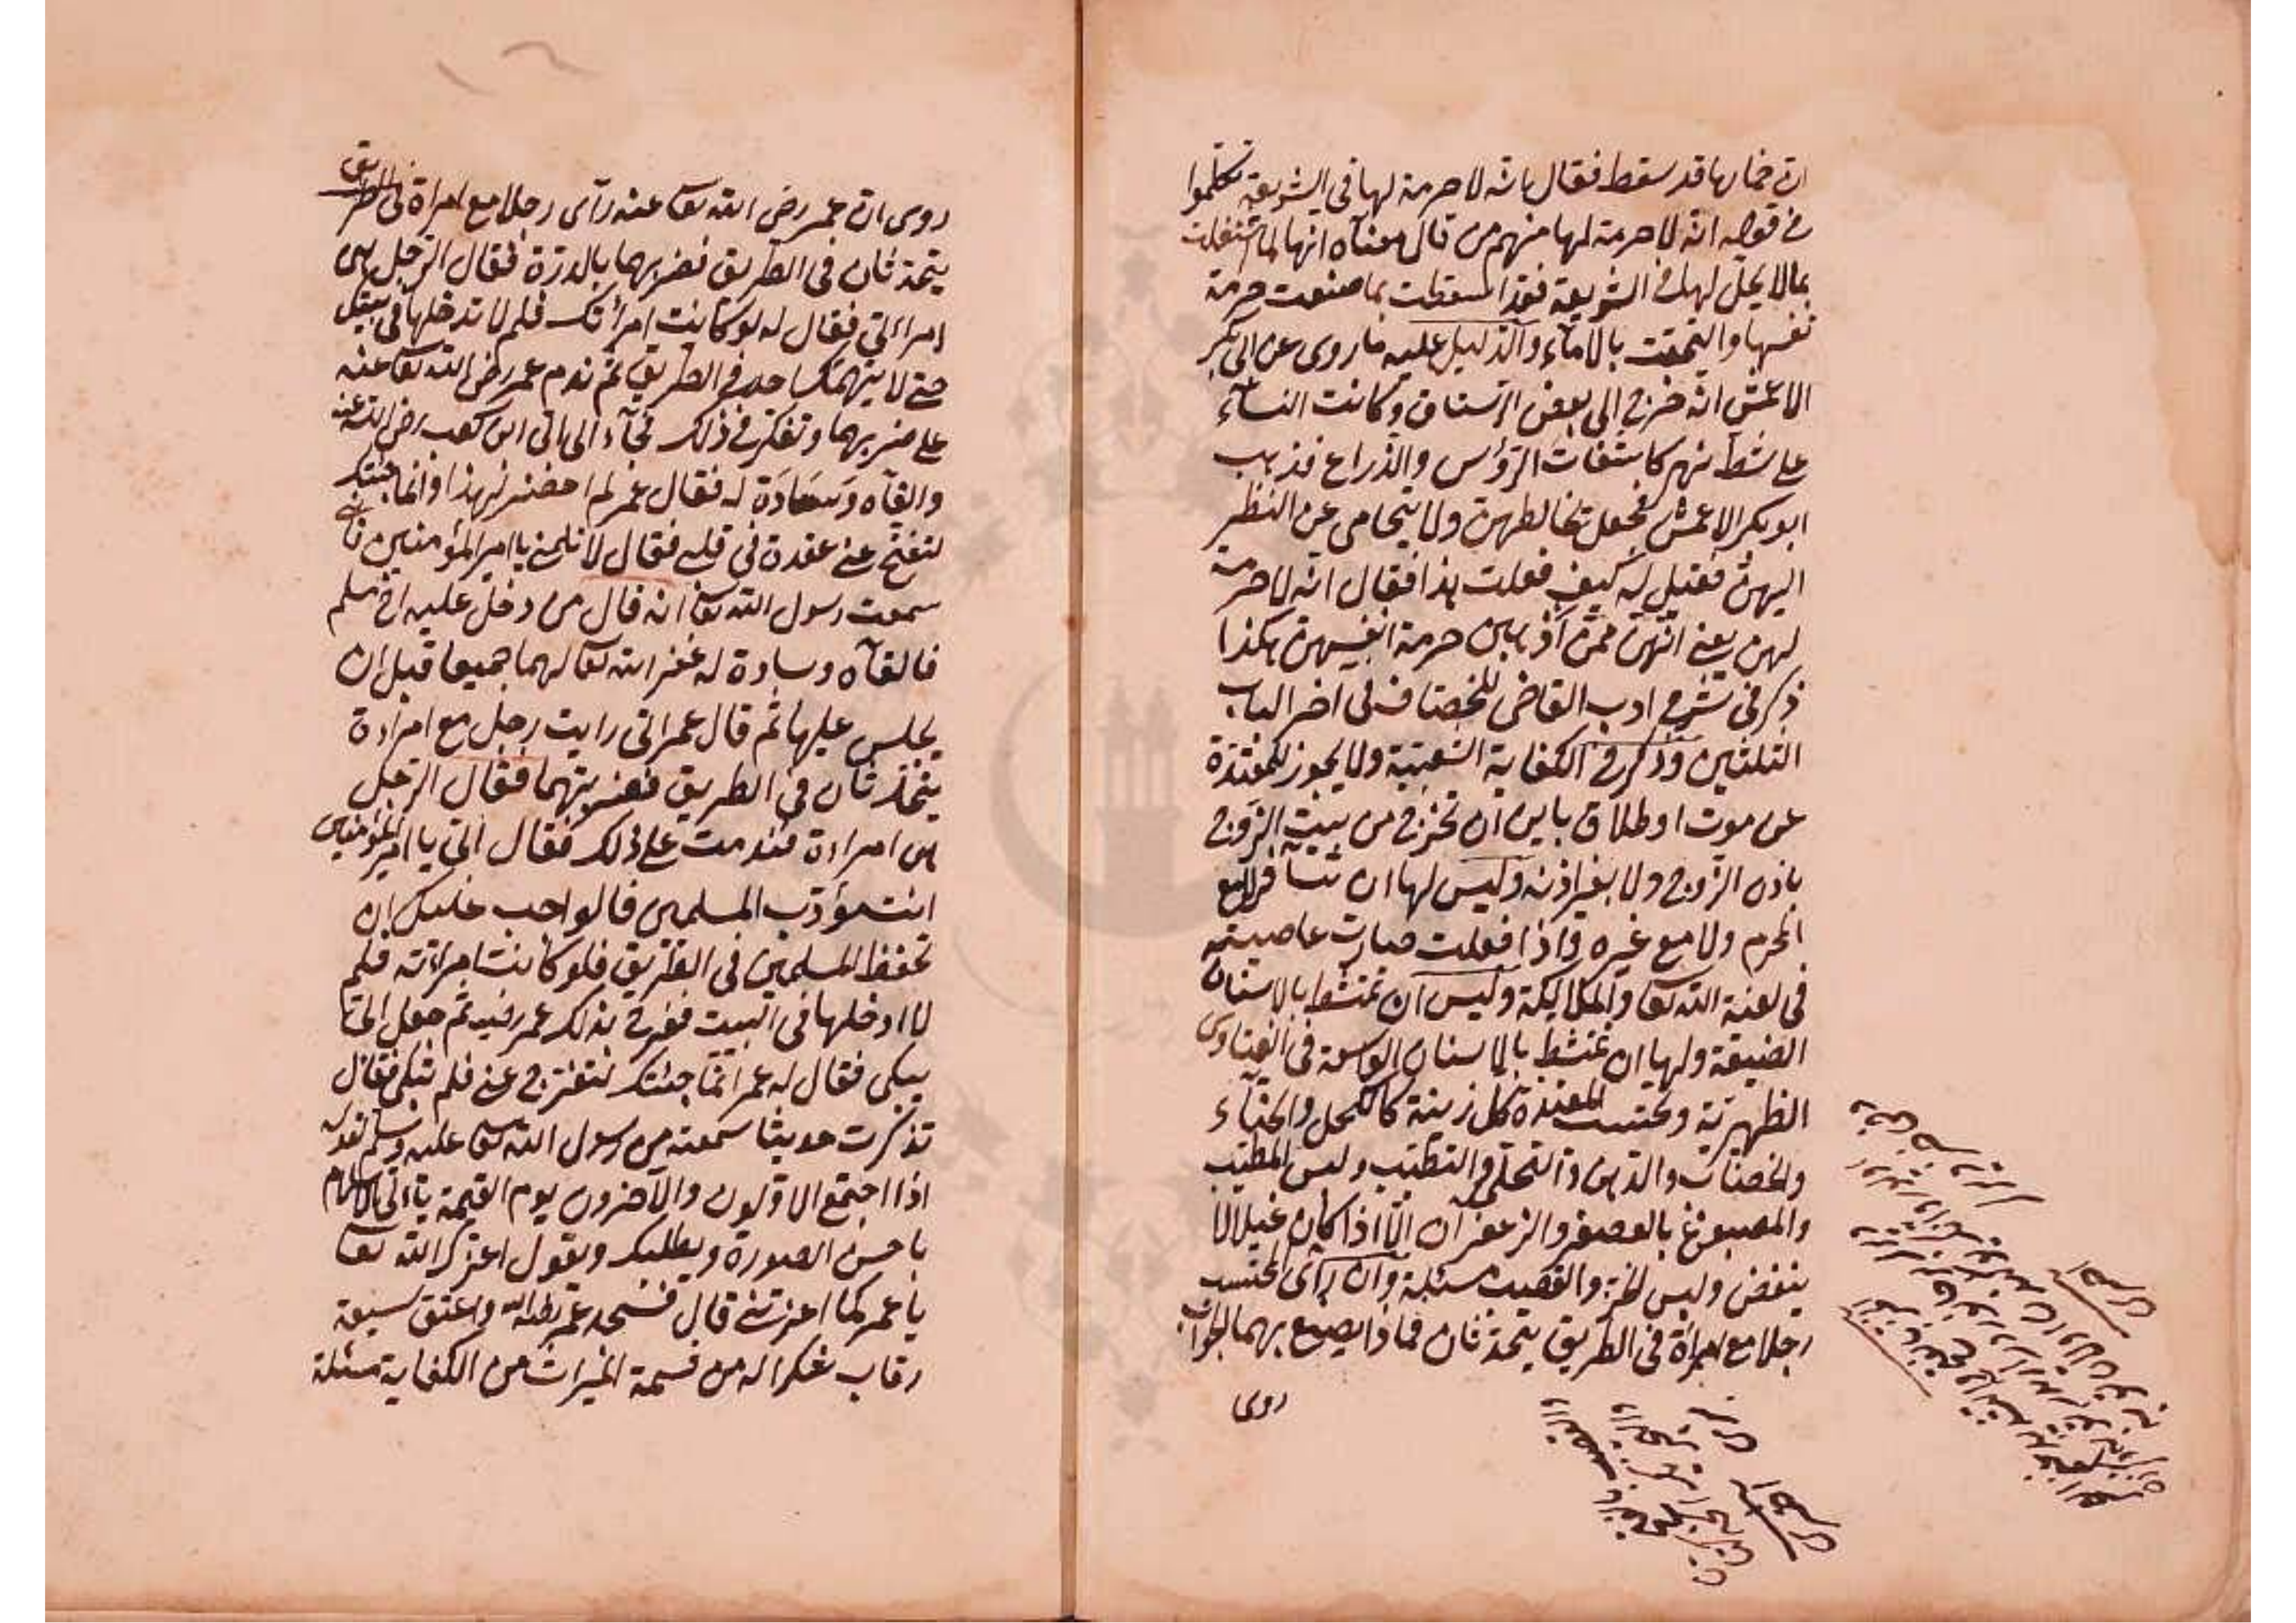 ان خمارها قد سقط فقال بانه لا حرمة لها فى الشريعة تكلموا
فى قوله انه لا حرمة لها منهم من قال معناه انها لما اشتغلت
بمالا يحل لها فى الشريعة فقد اسقطت بما صنعت حرمة
نفسها والتحقت بالاماء والدليل عليه ما روى عن ابى بكر
الاعمش انه خرج الى بعض الرستاق وكانت النساء
على شط نهر كاشفات الرؤس والذراع فذهب
ابو بكر الاعمش فجعل تخالطهن ولا يتحامى عن النظر
اليهن فقيل له كيف فعلت هذا فقال انه لا حرمة
لهن يعنى انهن ممن اذهبن حرمة انفسهن هكذا
ذكر فى شرح ادب القاضى للخصاف فى آخر الباب
الثلثين وذكر فى الكفاية الشعبية ولا يجوز للمعتدة
عن موت او طلاق باين ان تخرج من بيت الزوج
باذن الزوج ولا بغير اذنه وليس لها ان تسافر مع
المحرم ولا مع غيره واذا فعلت صارت عاصية
فى لعنة الله تعا والملائكة وليس ان تمتشط بالاسنان
الضيقة ولها ان تمتشط بالاسنان الواسعة فى الفتاوى
الظهيرية وتجتنب المعتدة كل زينة كالكحل والحناء
والخضاب والدهن والتحلى والتطيب ولبس المطيب
والمصبوغ بالعصفر والزعفران الا اذا كان غسيلا لا
ينفض ولبس الخز والقصب مسئلة وان رأى المحتسب
رجلا مع امرأة فى الطريق يتحدثان فماذا يصنع بهما الجواب
روى
روى ان عمر رضى الله تعا عنه رآى رجلا مع امراة فى الطريق
يتحدثان فى الطريق فضربهما بالدرة فقال الرجل هى
امرأتى فقال له لو كانت امرأتك فلم لا تدخلها فى بيتك
حتى لا يتهمك احد فى الطريق ثم ندم عمر رضى الله تعا عنه
على ضربهما وتفكر فى ذلك فجاء الى ابى ابن كعب رضى الله عنه
والقاه وسادة له فقال عمر لم احضر لهذا وانما جئتك
لتفتح عنى عقدة فى قلبى فقال لا تلمنى يا امير المؤمنين فانى
سمعت رسول الله تعا انه قال من دخل عليه اخ مسلم
فالقاه وسادة له غفر الله تعا لهما جميعا قبل ان
يجلس عليها ثم قال عمر انى رايت رجل مع امراءة
يتحدثان فى الطريق فضربتهما فقال الرجل
هى امراءة فندمت على ذلك فقال ابى يا امير المؤمنين
انت مؤدب المسلمين فالواجب عليك ان
تحفظ المسلمين فى الطريق فلو كانت امراءته فلم
لا ادخلها فى البيت ففرح بذلك عمر رضى ثم جعل ابى
يبكى فقال له عمر انما جئتك لتفرج عنى فلم تبكى فقال
تذكرت حديثا سمعته من رسول الله تعا عليه وسلم
اذا اجتمع الاولون والآخرون يوم القيمة ياتى الاسلام
باحسن الصورة ويطلبك ويقول اعزك الله تعا
يا عمر كما اعززتنى قال فسجد عمر لله واعتق سبعة
رقاب شكرا له من قسمة الميراث من الكفاية مسئلة